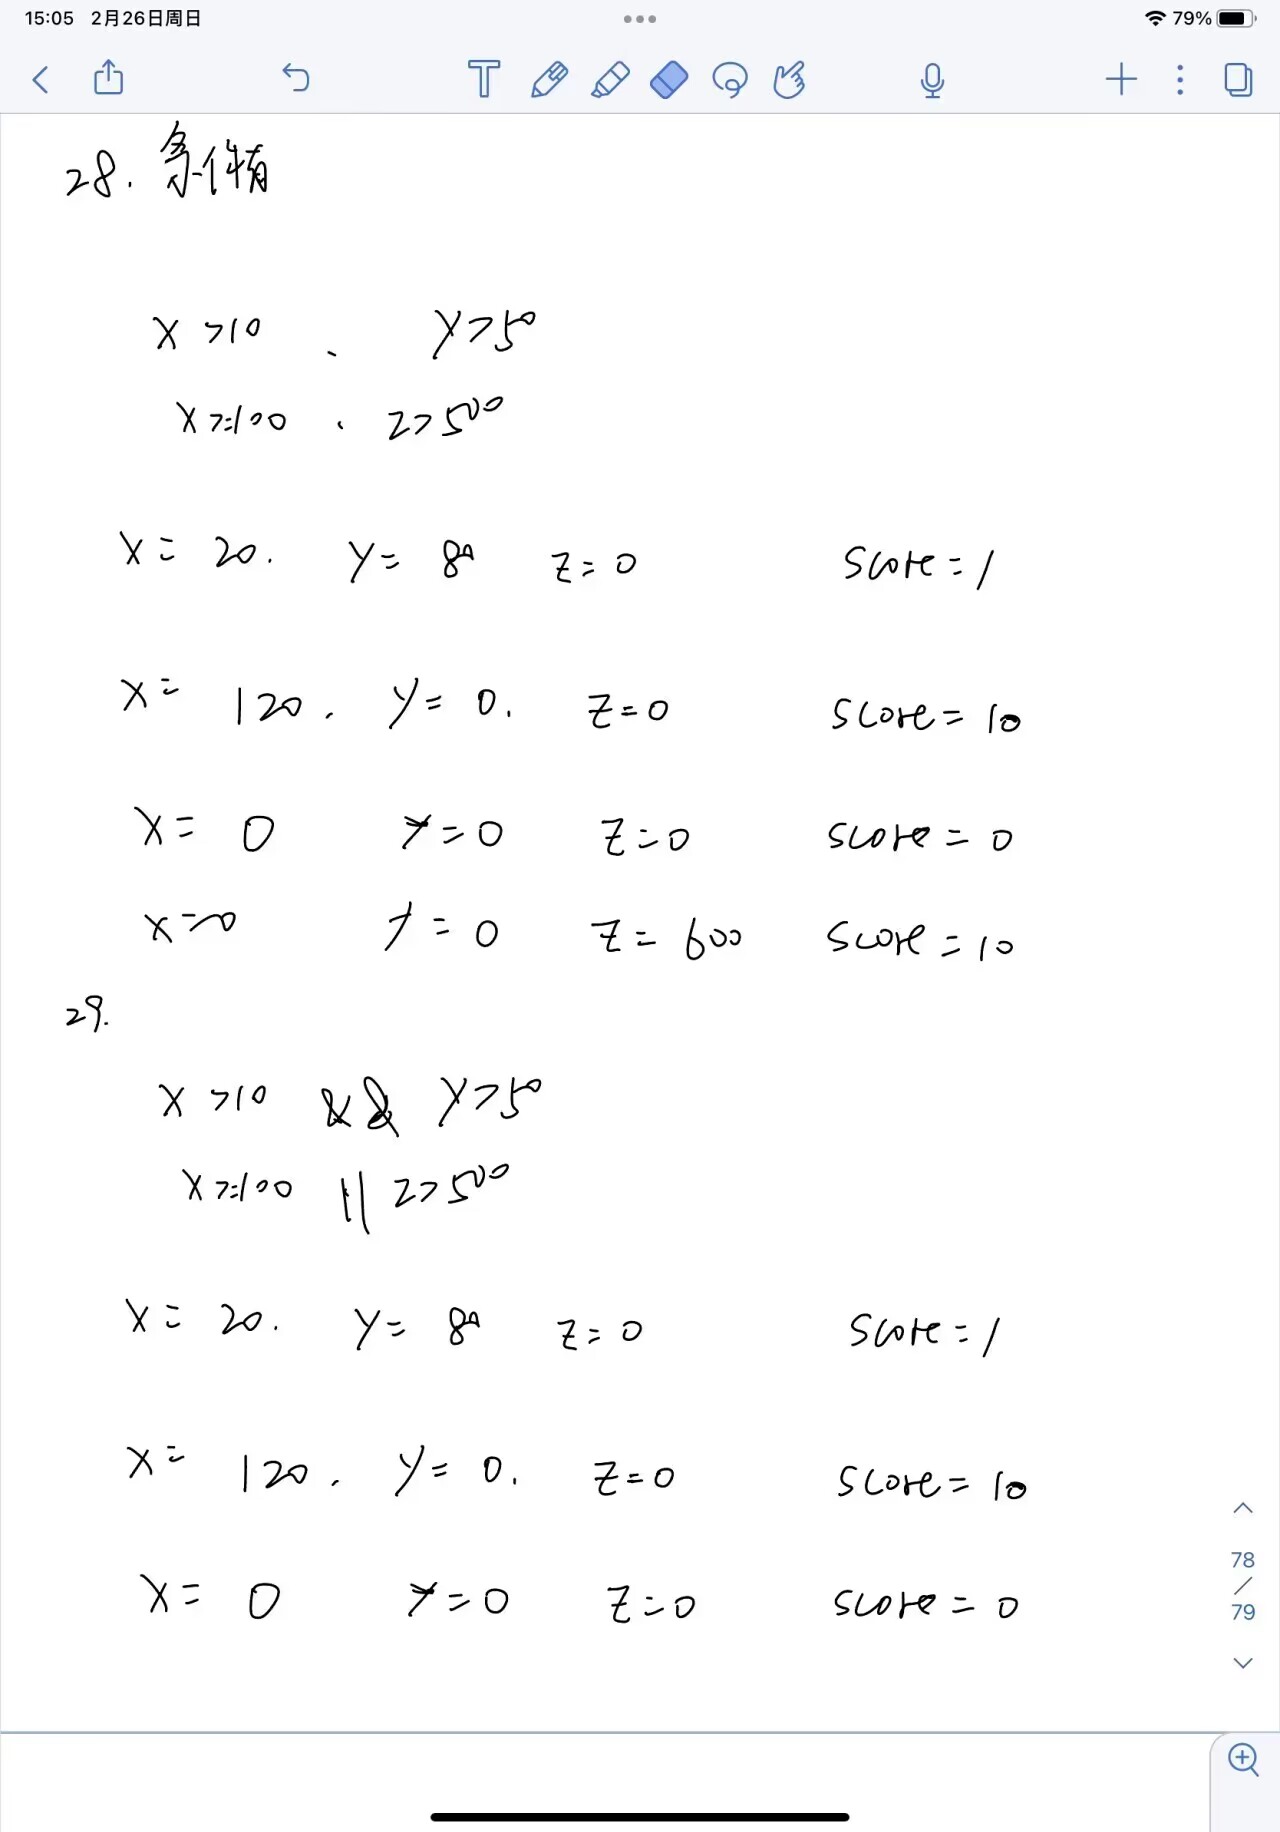 15:05 2月26日周日 79%
28. 条件有
x >10 . y>50
x>=100 . z>500
x= 20. y= 80 z=0 score=1
x= 120. y=0. z=0 score=10
x= 0 y=0 z=0 score=0
x=0 y=0 z=600 score=10
29.
x >10 && y>50
x>=100 || z>500
x= 20. y= 80 z=0 score=1
x= 120. y=0. z=0 score=10
x= 0 y=0 z=0 score=0
78
/
79